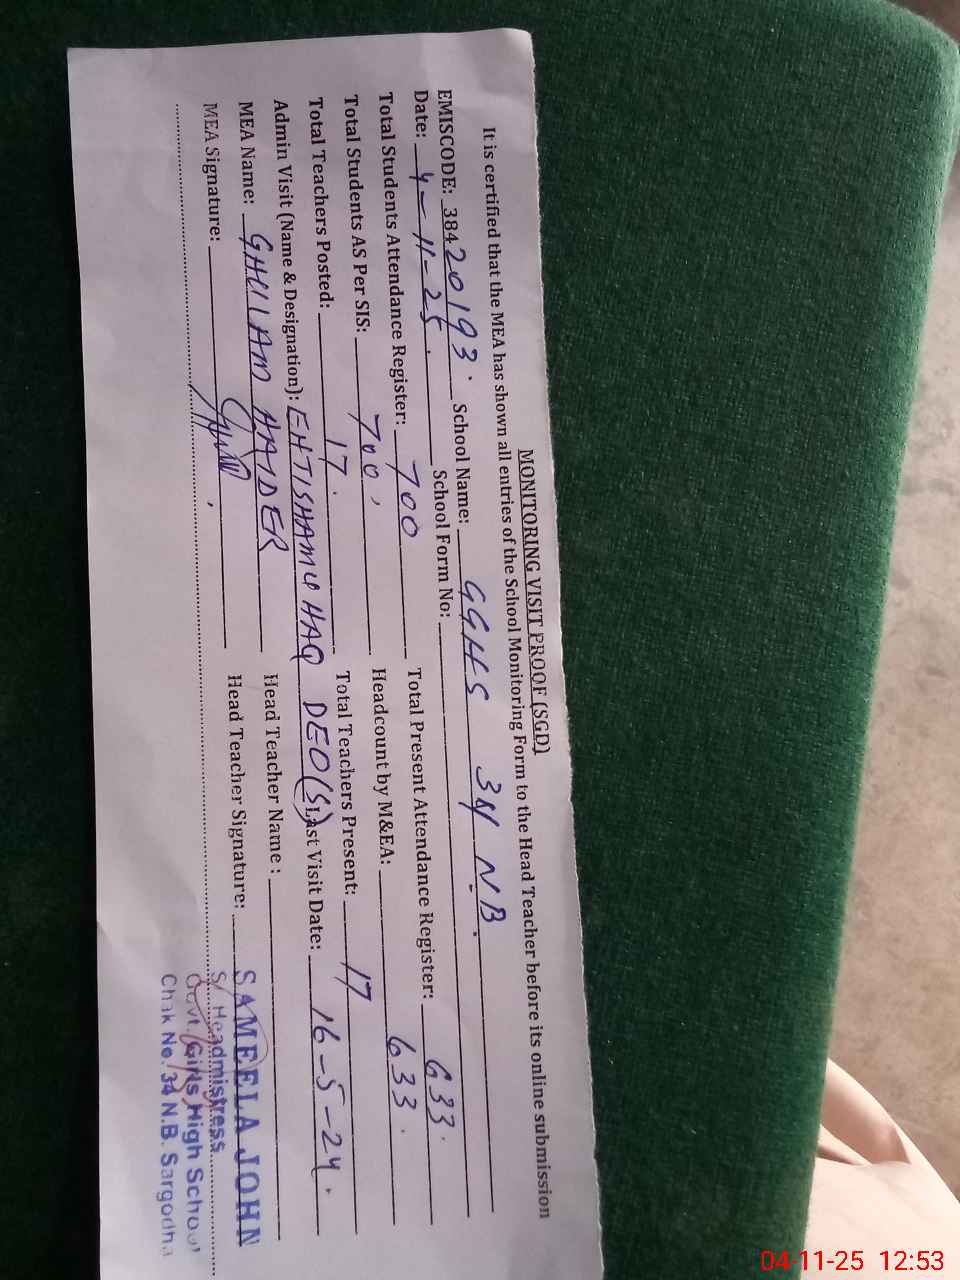 MONITORING VISIT PROOF (SGD)
It is certified that the MEA has shown all entries of the School Monitoring Form to the Head Teacher before its online submission
EMISCODE: 38420193. School Name: GGHS 34 N.B.
Date: 4-11-25. School Form No:
Total Students Attendance Register: 700 Total Present Attendance Register: 633.
Total Students AS Per SIS: 700, Headcount by M&EA: 633.
Total Teachers Posted: 17. Total Teachers Present: 17
Admin Visit (Name & Designation): EHTISHAMU HAQ DEO(S) Last Visit Date: 16-5-24.
MEA Name: GHULAM HAIDER Head Teacher Name :
MEA Signature: Head Teacher Signature:
SAMEELA JOHN
S/ Headmistress
Govt. Girls High School
Chak No. 34 N.B. Sargodha
04-11-25 12:53